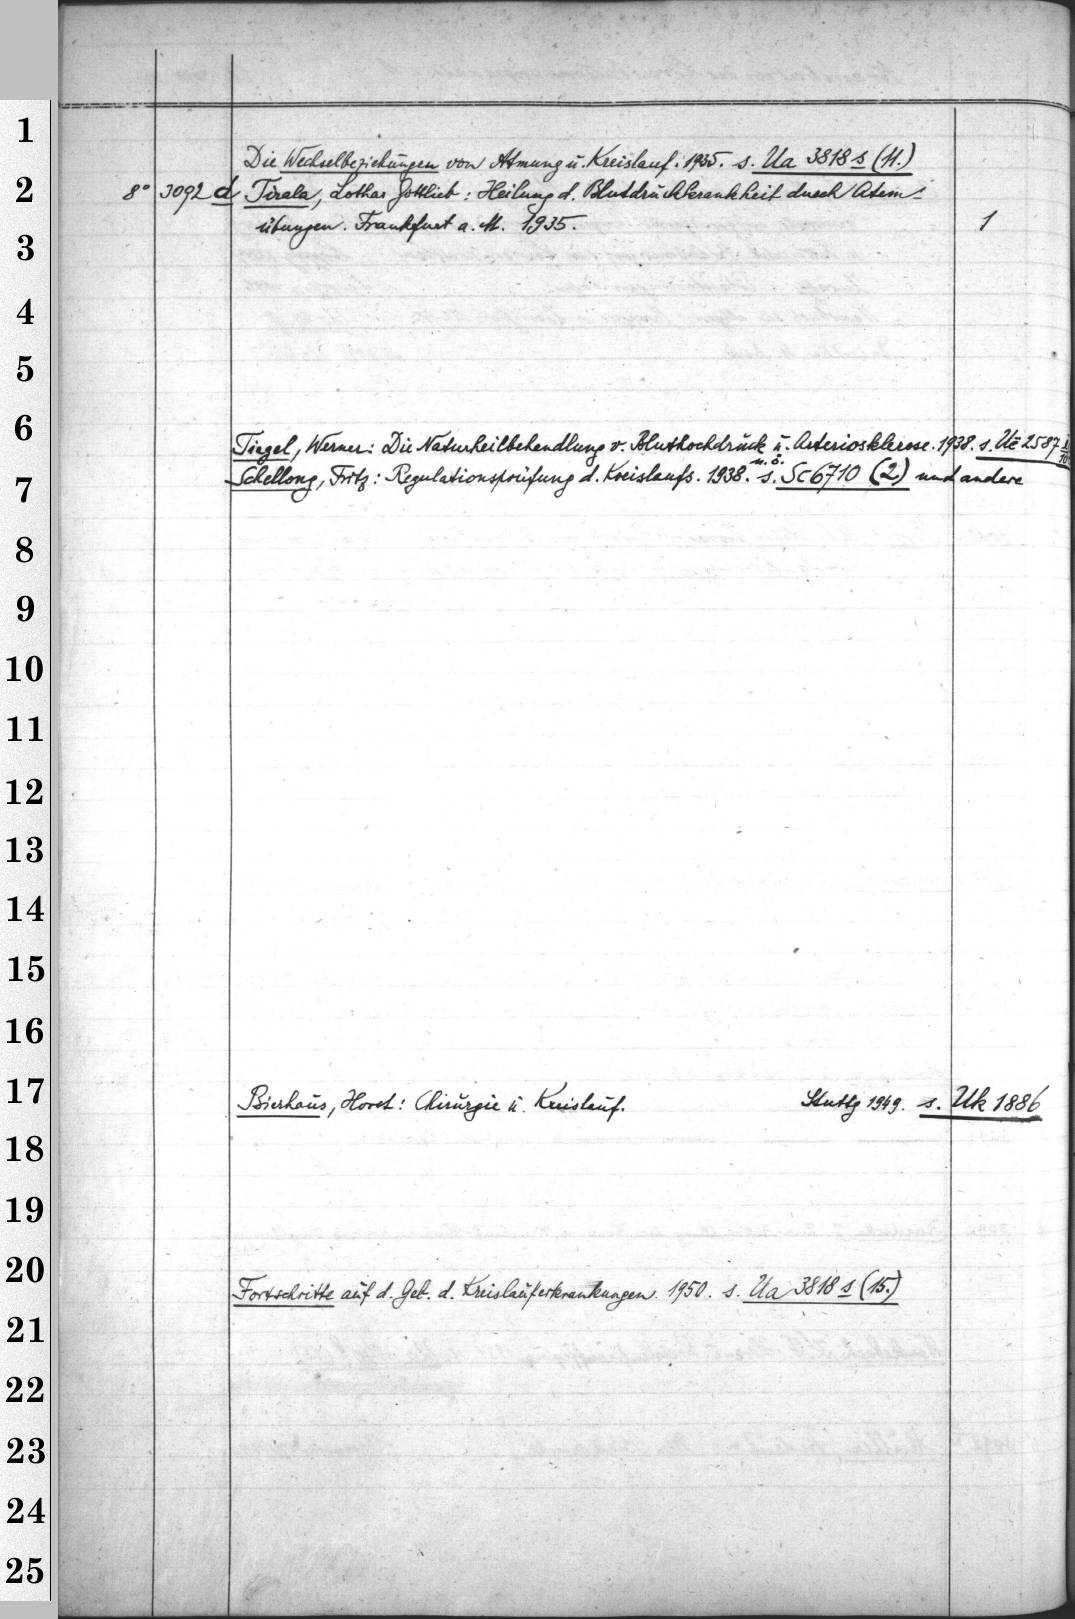 1
Die Wechselbeziehungen von Atmung u. Kreislauf. 1935. s. Ua 3818 s (11.)
2
8° 3092 d Tirala, Lothar Gottlieb: Heilung d. Blutdruckkrankheit durch Atem-
übungen. Frankfurt a. M. 1935. 1
3
4
5
6
Tiegel, Werner: Die Naturheilbehandlung v. Bluthochdruck u. Arteriosklerose. 1938. s. Uz 2587
7
Schellong, Fritz: Regulationsprüfung d. Kreislaufs. 1938. s. Sc 6710 (2.) und andere
8
9
10
11
12
13
14
15
16
17
Bierhaus, Horst: Chirurgie u. Kreislauf. Stuttg 1949. s. Uk 1886
18
19
20
Fortschritte auf d. Geb. d. Kreislauferkrankungen. 1950. s. Ua 3818 s (15.)
21
22
23
24
25